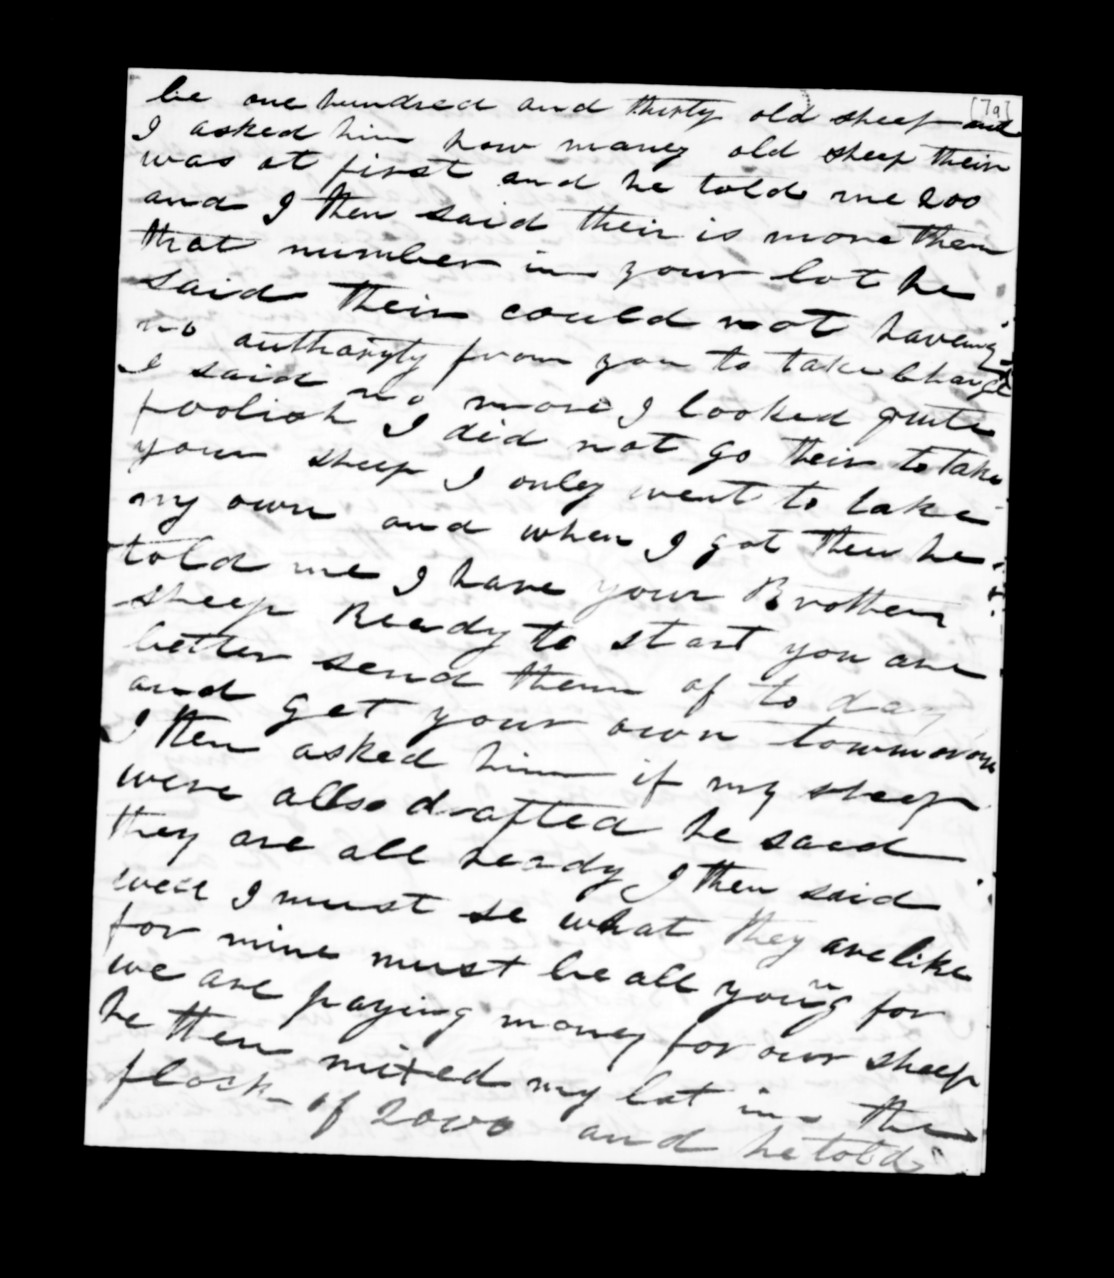 [7a]
be one hundred and thirty old sheep and
I asked him how maney old sheep their
was at first and he told me 200
and I then said their is more then
that number in your lot he
said their could not haveing
no autharyty from you to take charge
I said no more I looked quite
foolish I did not go their to take
your sheep I only went to take
my own and when I got their he
told me I have your Brother
sheep Ready to start you are
better send them of to day
and get your own towmorow
I then asked him if my sheep
were allso drafted he saed
they are all ready I then said
well I must se what they are like
for mine must be all young for
we are paying money for our sheep
he then mixed my lot in the
flock of 2000 and he told